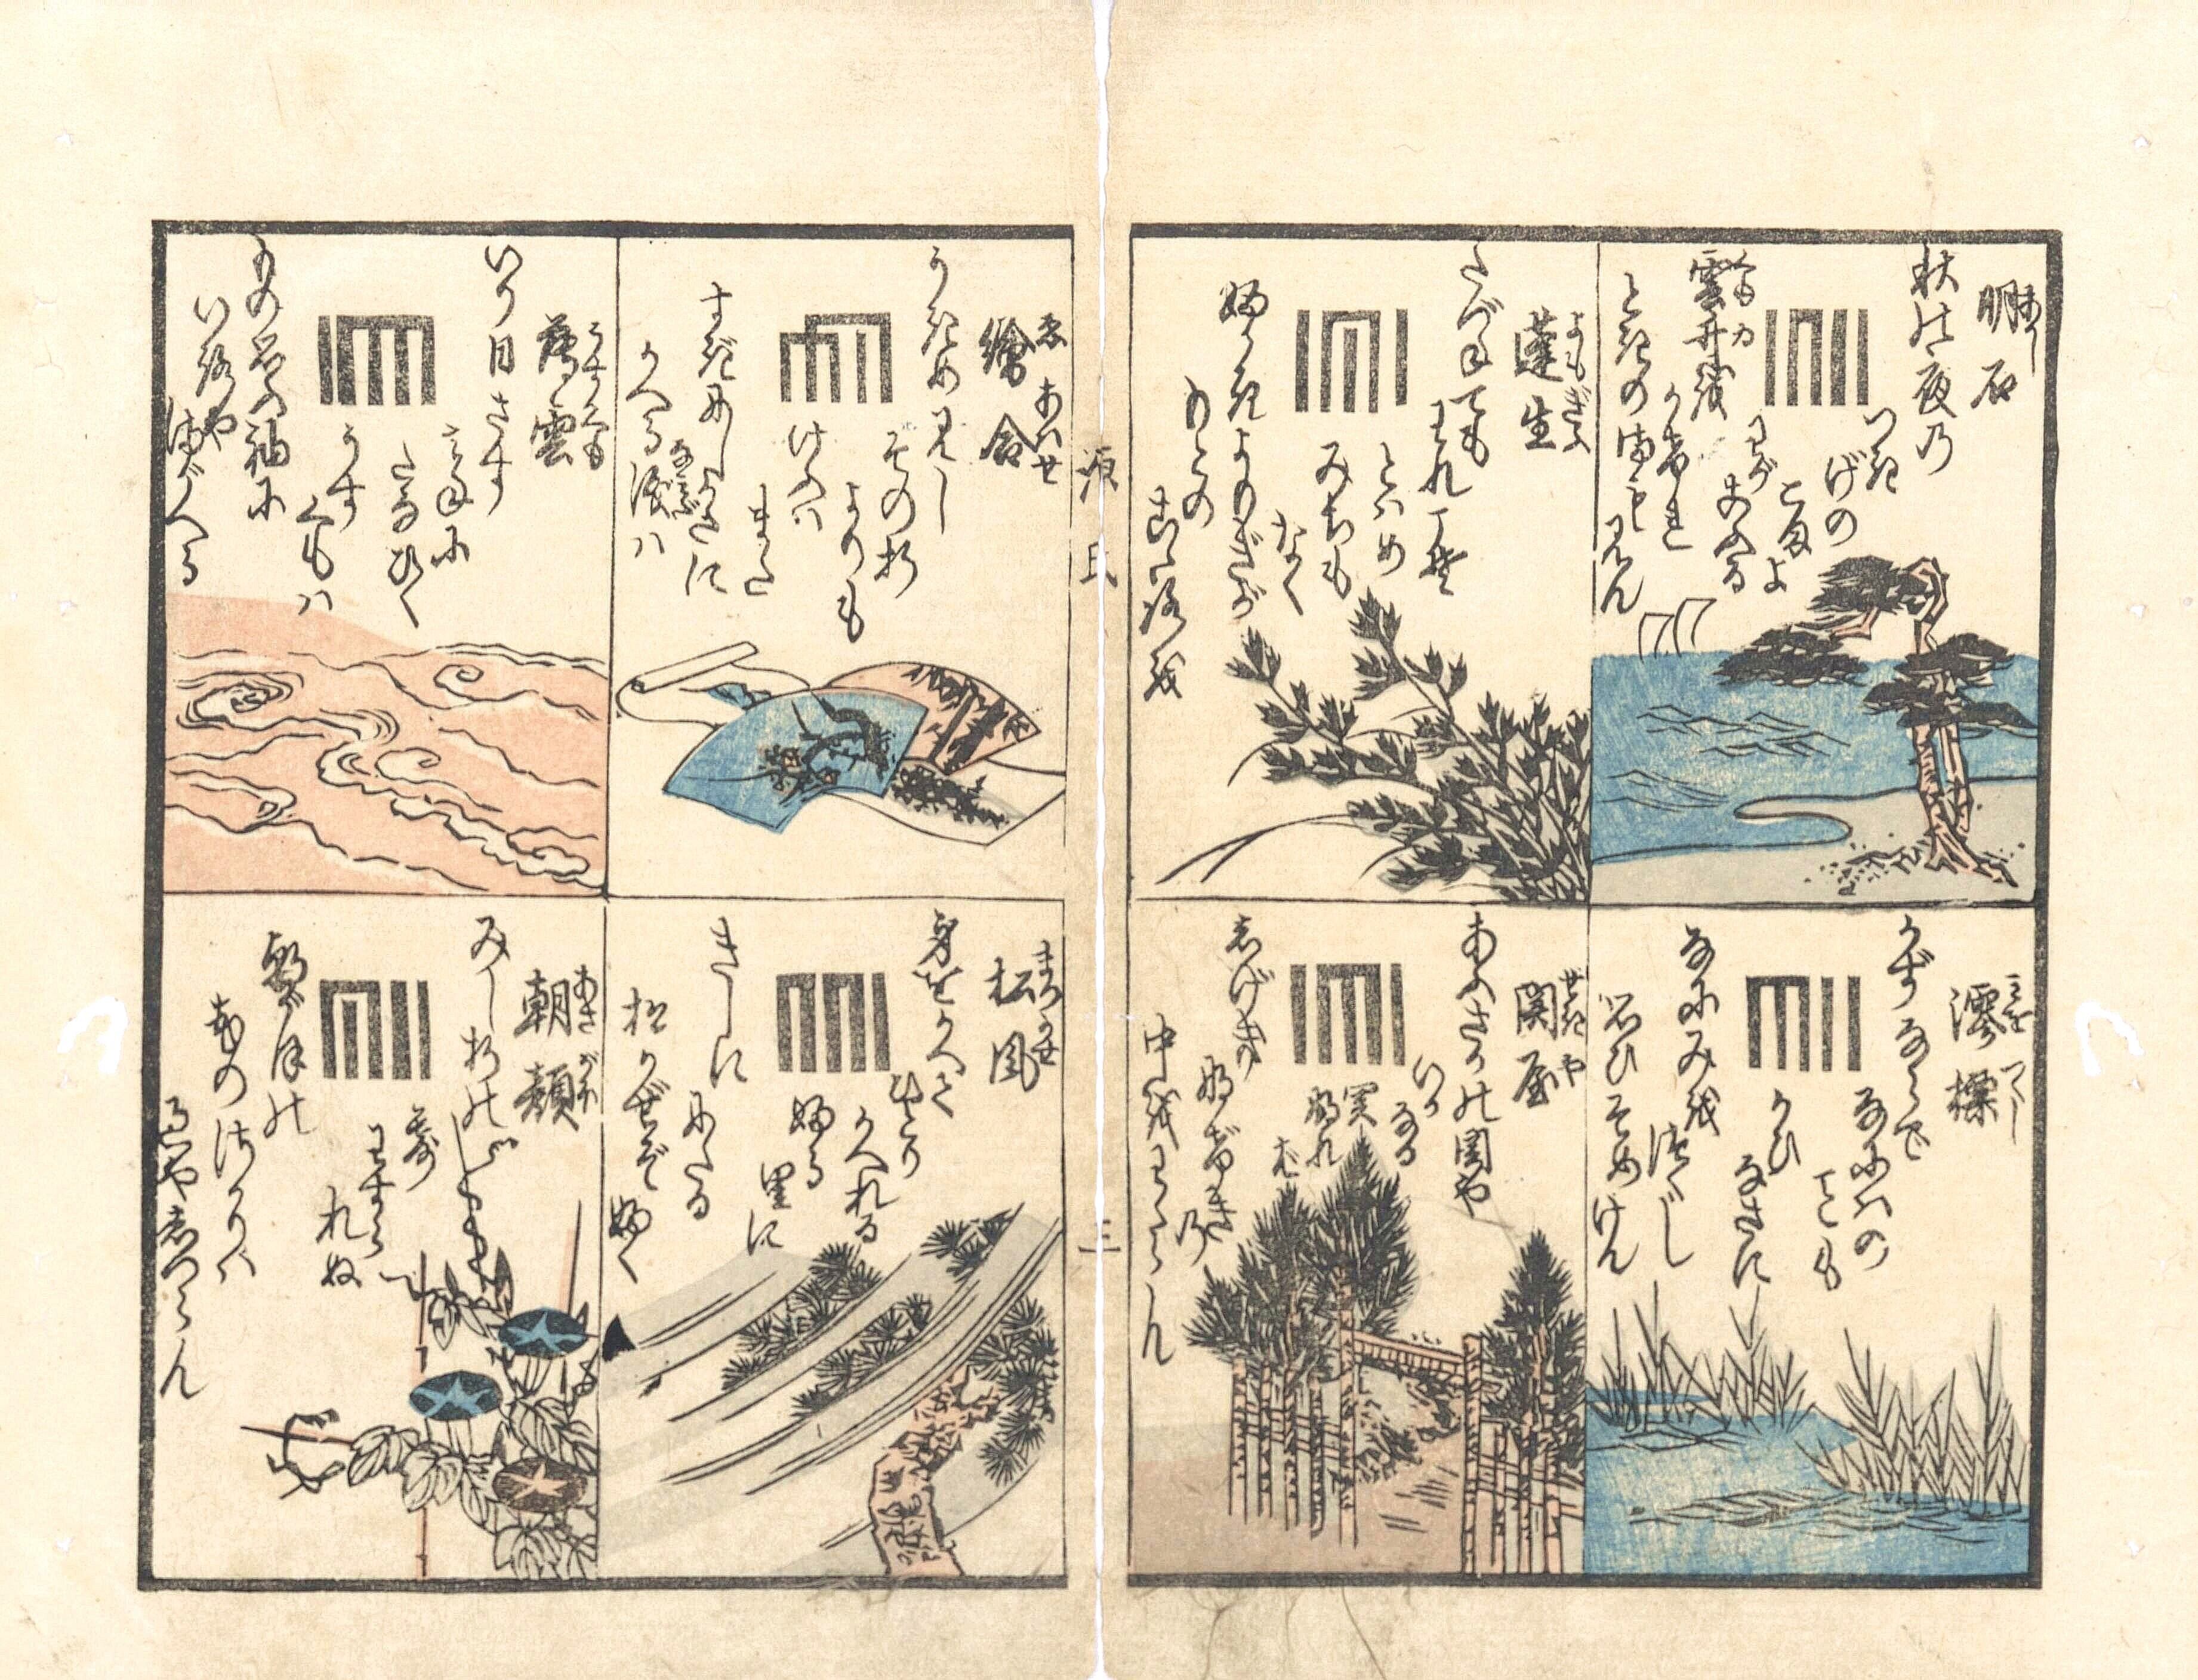 明石
あかし
秋の夜の
つき
げの
こまよ
わが
こふる
雲井を
くもカ
かけれ
ときのまも見ん
澪標
みをつくし
かずならで
なにはの
ことも
かひ
なきに
などみを
つくし
思ひそめけん
蓬生
よもぎふ
たづねても
われこそ
とはめ
みちも
なく
ふかきよもぎが
もとの
こゝろを
関屋
せきや
あふさかの関や
いか
なる
関
なれ
ば
しげき
なげきの
中をわくらん
繪合
ゑあはせ
うきめ見し
その折
よりも
けふは
また
すぎにしかたに
かへる
なみだ
か
松風
まつかぜ
身をかへて
ひとり
かへれる
ふる
里に
きゝしに
にたる
松かぜぞふく
薄雲
うすぐも
いり日さす
みねに
たなびく
うす
ぐもは
もの思ふ袖に
いろや
まがへる
朝顔
あさがほ
みし折の
つゆ
わすら
れぬ
朝がほの
花の
さかりは
過やしぬらん
源氏
三